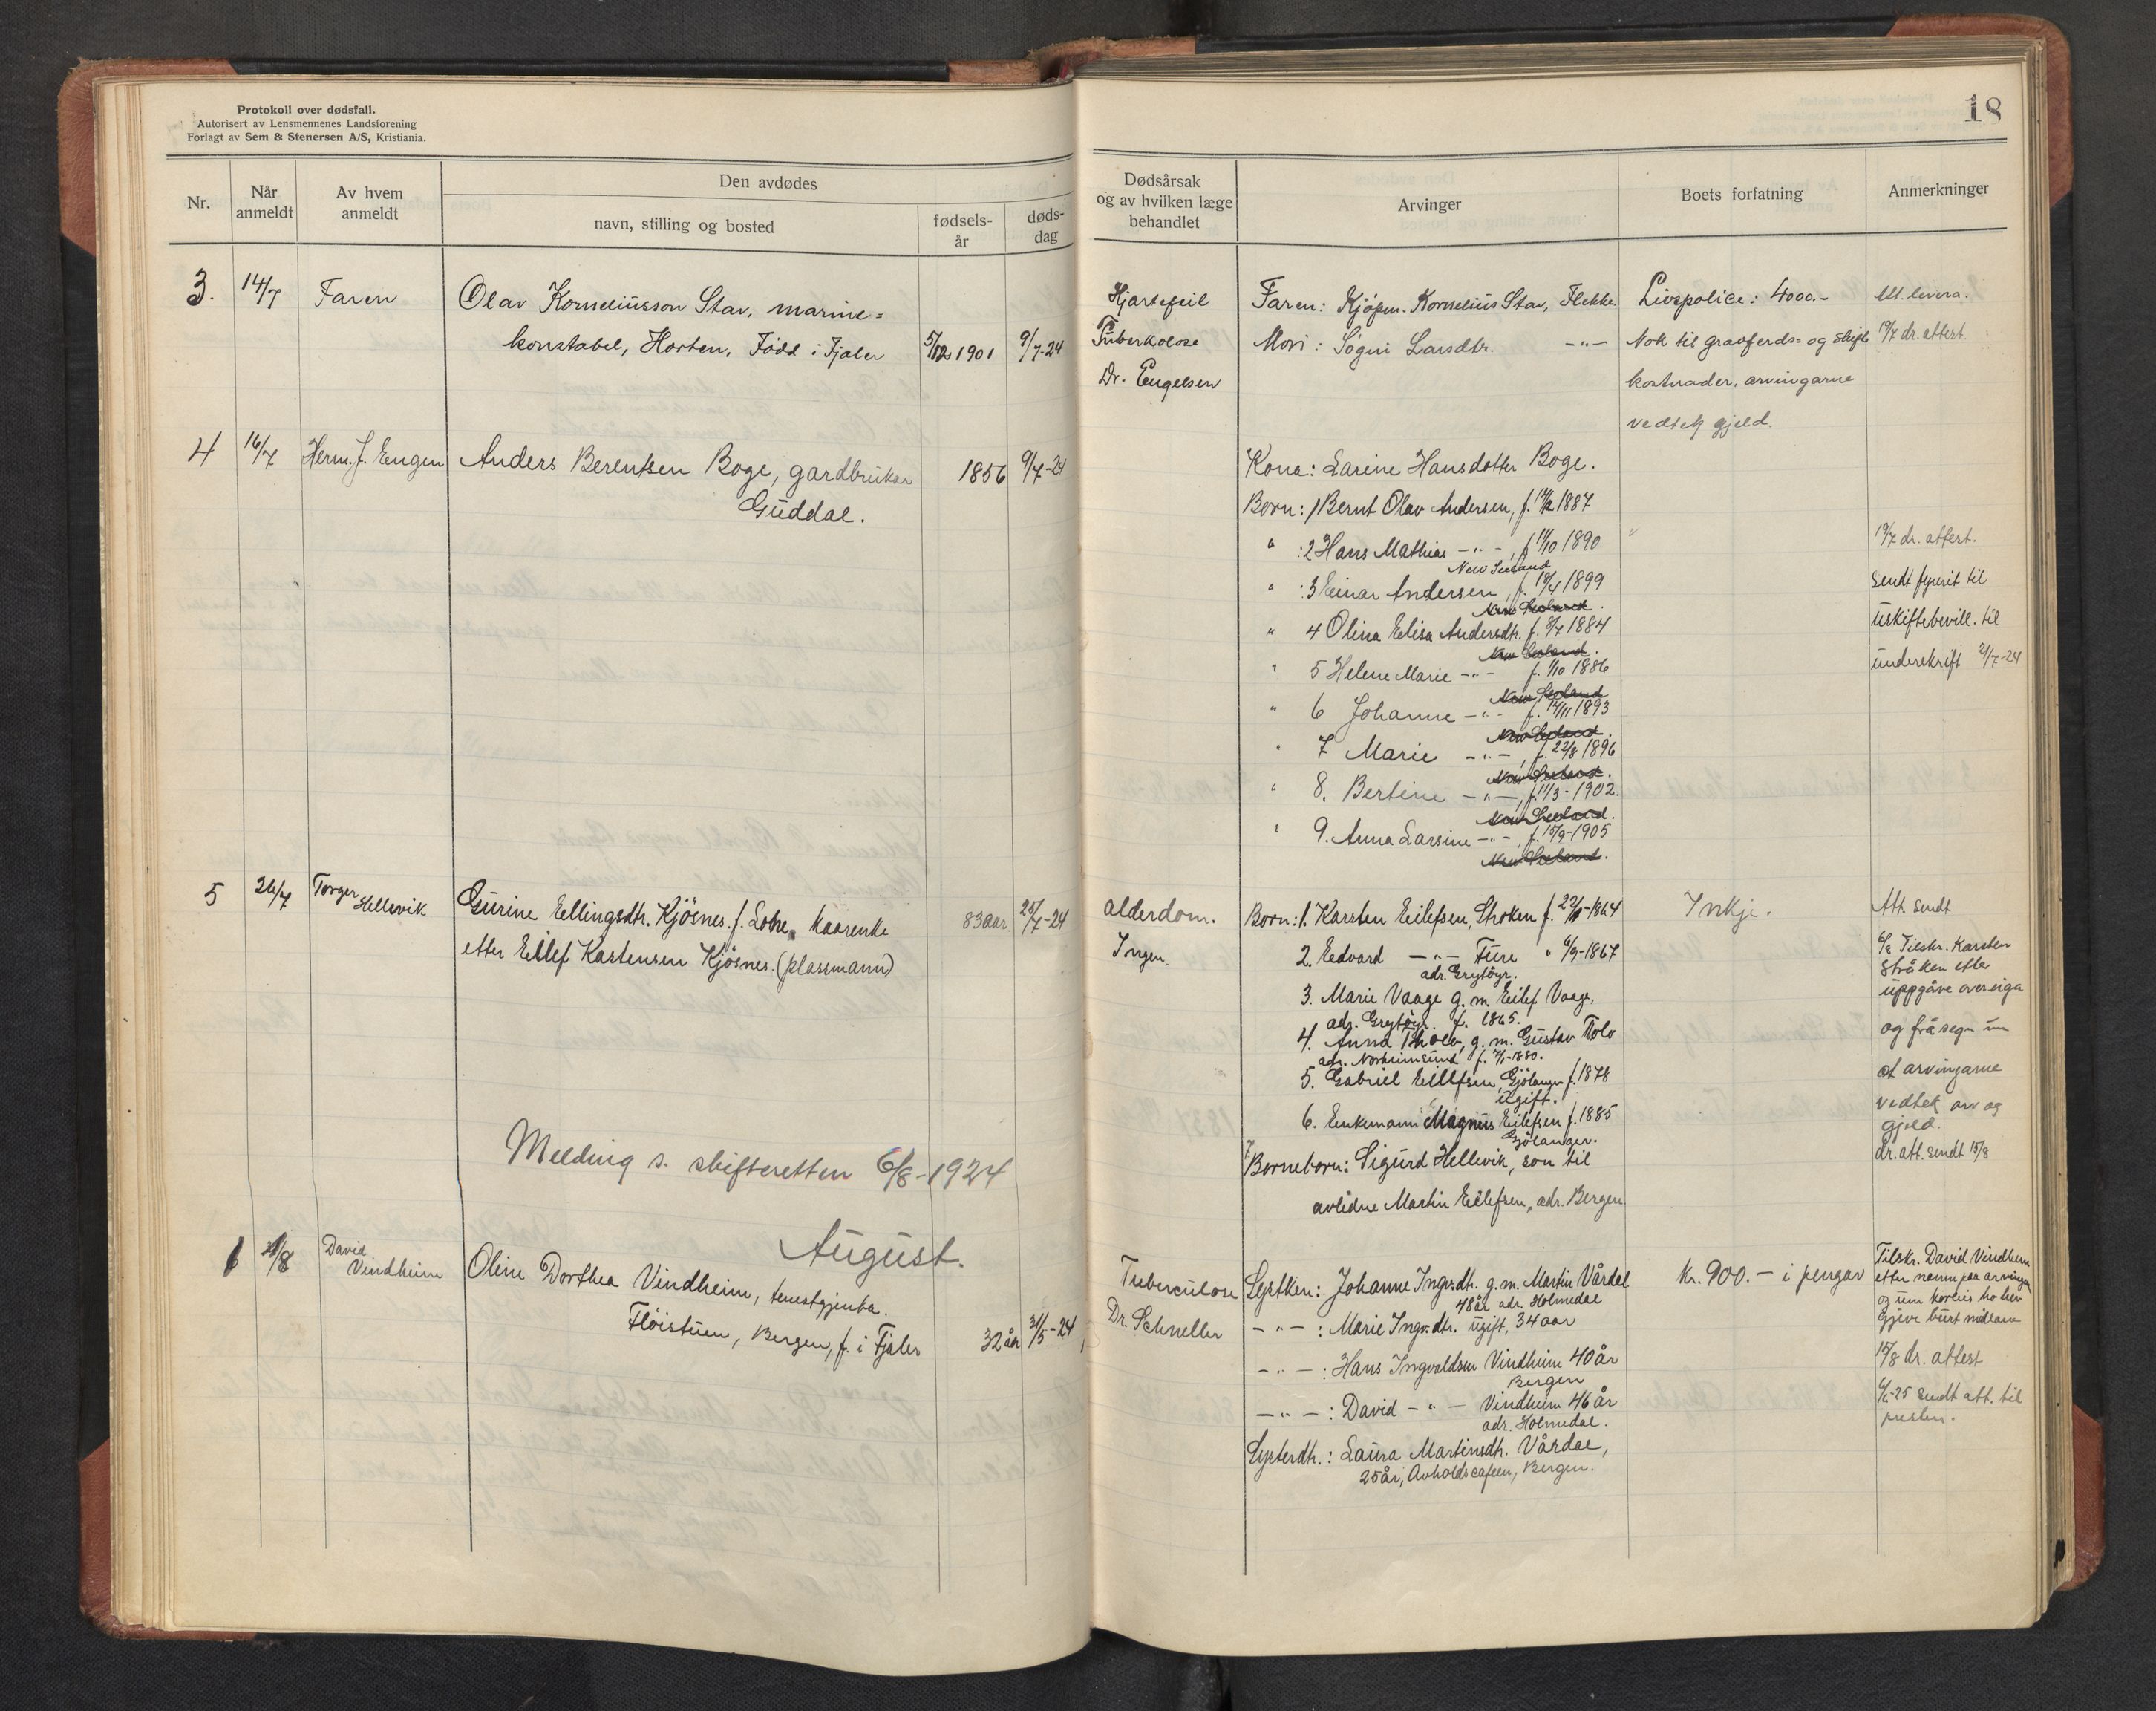 Protokoll over dødsfall.
Autorisert av Lensmennenes Landsforening
Forlagt av Sem & Stenersen A/S, Kristiania.
18
Nr.
Når anmeldt
Av hvem anmeldt
Den avdødes
navn, stilling og bosted
fødsels-år
døds-dag
Dødsårsak
og av hvilken læge
behandlet
Arvinger
Boets forfatning
Anmerkninger
3. 14/7 Faren Olav Korneliusson Stav, marine=
konstabel, Horten, Född i Fjaler 5/12 1901 9/7-24
Hjartefeil
Tuberkolose
Dr. Engelsen
Faren: Kjöpm. Kornelius Stav, Flekke
Mori: Sögni Larsdtr. -"-
Livspolice: 4000.-
Nok til gravferds= og skifte
kostnader, arvingarne
vedtek gjeld.
19/7 dr. attest
4 16/7 Herm. J. Eengen Anders Berentsen Boge, gardbrukar
Guddal. 1856 9/7-24
Kona: Larine Hansdotter Boge.
Born: 1 Bernt Olav Andersen, f. 1887
" : 2 Hans Mathias -"-, f. 11/10 1890
New Seeland
" : 3 Einar Andersen, f. 18/4 1899
New Seeland.
" 4 Olina Elisa Andersdtr. f. 8/7 1884
New Seeland.
" 5 Helene Marie -"- f. 1/10 1886
New Seeland
" 6 Johanne -"- f. 14/11 1893
New Seeland.
" 7 Marie -"-, f. 22/8 1896
New Seeland.
" 8. Bertine -"-, f. 11/3-1902.
New Seeland.
" 9. Anna Larsine -"-, f. 15/9-1905
New Seeland.
19/7 dr. attest.
sendt fyrerit til
uskiftebevill. til
underskrift 21/7-24
5 26/7 Torger Hellevik Gurine Ellingsdtr. Kjösnes. f. Lotre, kaarenke
etter Eilef Karstensen Kjösnes. (plassmann) 83 aar. 25/7-24
alderdom.
Ingen.
Born: 1. Karsten Eilefsen, Stroken f. 1864
2. Edvard -"- Fure " 6/9-1867
adr. Grytöyr.
3. Marie Vaage g. m. Eilef Vaage,
adr. Grytöyr. f. 1865.
4. Anna Tholo, g. m. Gustav Tolo
adr. Norheimsund f. 1880.
5. Gabriel Eilefsen, Gjölanger f. 1878
ugift.
6. Enkemann Magnus Eilefsen f. 1885
Gjölanger.
7. Borneborn: Sigurd Hellevik, son til
avlidne Martin Eilefsen, adr. Bergen.
Inkje.
Att. sendt
6/8 Tilskr. Karsten
Stråken etter
uppgåve over eiga
og fråsegn um
at arvingarne
vedtek arv og
gjeld.
dr. att. sendt 15/8
Melding s. skifteretten 6/8-1924
August.
1 4/8 David Vindheim Oline Dorthea Vindheim, tenestgjenta.
Flöistuen, Bergen, f. i Fjaler 32 år 31/5-24
Tuberculose
Dr. Schneller
Systken: Johanne Ingv.dtr. g. m. Martin Vårdal
48 år adr. Holmedal
-"-: Marie Ingv.dtr. ugift, 34 aar
-"-: Hans Ingvaldsen Vindheim 40 år
Bergen
-"-: David -"- Vindheim 46 år
adr. Holmedal.
Systerdtr.: Laura Martinsdtr. Vårdal,
25 år, Avholdscafeen, Bergen.
Kr. 900.- i pengar
Tilskr. David Vindheim
etter namn paa arvingar
og um korleis ho hev
gjeve burt midlane
15/8 dr. attest
sendt att. til
presten.